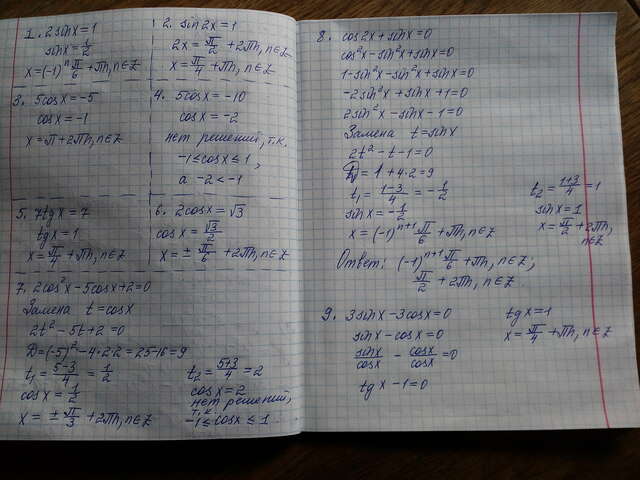 1. 2sinx=1
sinx=1/2
x=(-1)^n π/6 +πn, n∈Z
2. sin2x=1
2x=π/2 +2πn, n∈Z
x=π/4 +πn, n∈Z
3. 5cosx=-5
cosx=-1
x=π+2πn, n∈Z
4. 5cosx=-10
cosx=-2
нет решений, т.к.
-1≤cosx≤1,
а -2<-1
5. 7tgx=7
tgx=1
x=π/4 +πn, n∈Z
6. 2cosx=√3
cosx=√3/2
x=±π/6 +2πn, n∈Z
7. 2cos²x-5cosx+2=0
Замена t=cosx
2t²-5t+2=0
D=(-5)²-4·2·2=25-16=9
t₁=(5-3)/4=1/2
cosx=1/2
x=±π/3+2πn, n∈Z
t₂=(5+3)/4=2
cosx=2
нет решений,
т.к.
-1≤cosx≤1
8. cos2x+sinx=0
cos²x-sin²x+sinx=0
1-sin²x-sin²x+sinx=0
-2sin²x+sinx+1=0
2sin²x-sinx-1=0
Замена t=sinx
2t²-t-1=0
D=1+4·2=9
t₁=(1-3)/4=-1/2
sinx=-1/2
x=(-1)^(n+1) π/6+πn, n∈Z
t₂=(1+3)/4=1
sinx=1
x=π/2+2πn,
n∈Z
Ответ: (-1)^(n+1) π/6+πn, n∈Z;
π/2+2πn, n∈Z.
9. 3sinx-3cosx=0
sinx-cosx=0
sinx/cosx - cosx/cosx=0
tgx-1=0
tgx=1
x=π/4+πn, n∈Z